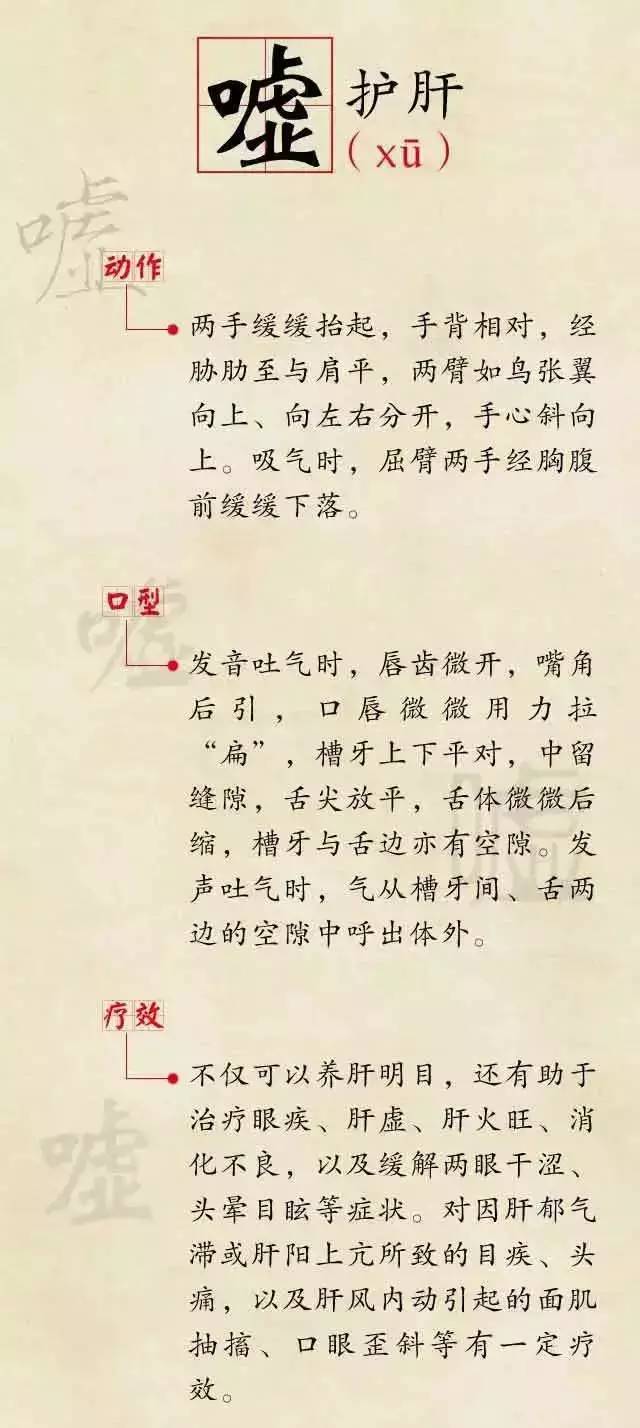 嘘 护肝
(xū)
嘘
动作
两手缓缓抬起，手背相对，经
胁肋至与肩平，两臂如鸟张翼
向上、向左右分开，手心斜向
上。吸气时，屈臂两手经胸腹
前缓缓下落。
口型
嘘
发音吐气时，唇齿微开，嘴角
后引，口唇微微用力拉
“扁”，槽牙上下平对，中留
缝隙，舌尖放平，舌体微微后
缩，槽牙与舌边亦有空隙。发
声吐气时，气从槽牙间、舌两
边的空隙中呼出体外。
疗效
不仅可以养肝明目，还有助于
治疗眼疾、肝虚、肝火旺、消
化不良，以及缓解两眼干涩、
嘘
头晕目眩等症状。对因肝郁气
滞或肝阳上亢所致的目疾、头
痛，以及肝风内动引起的面肌
抽搐、口眼歪斜等有一定疗
效。